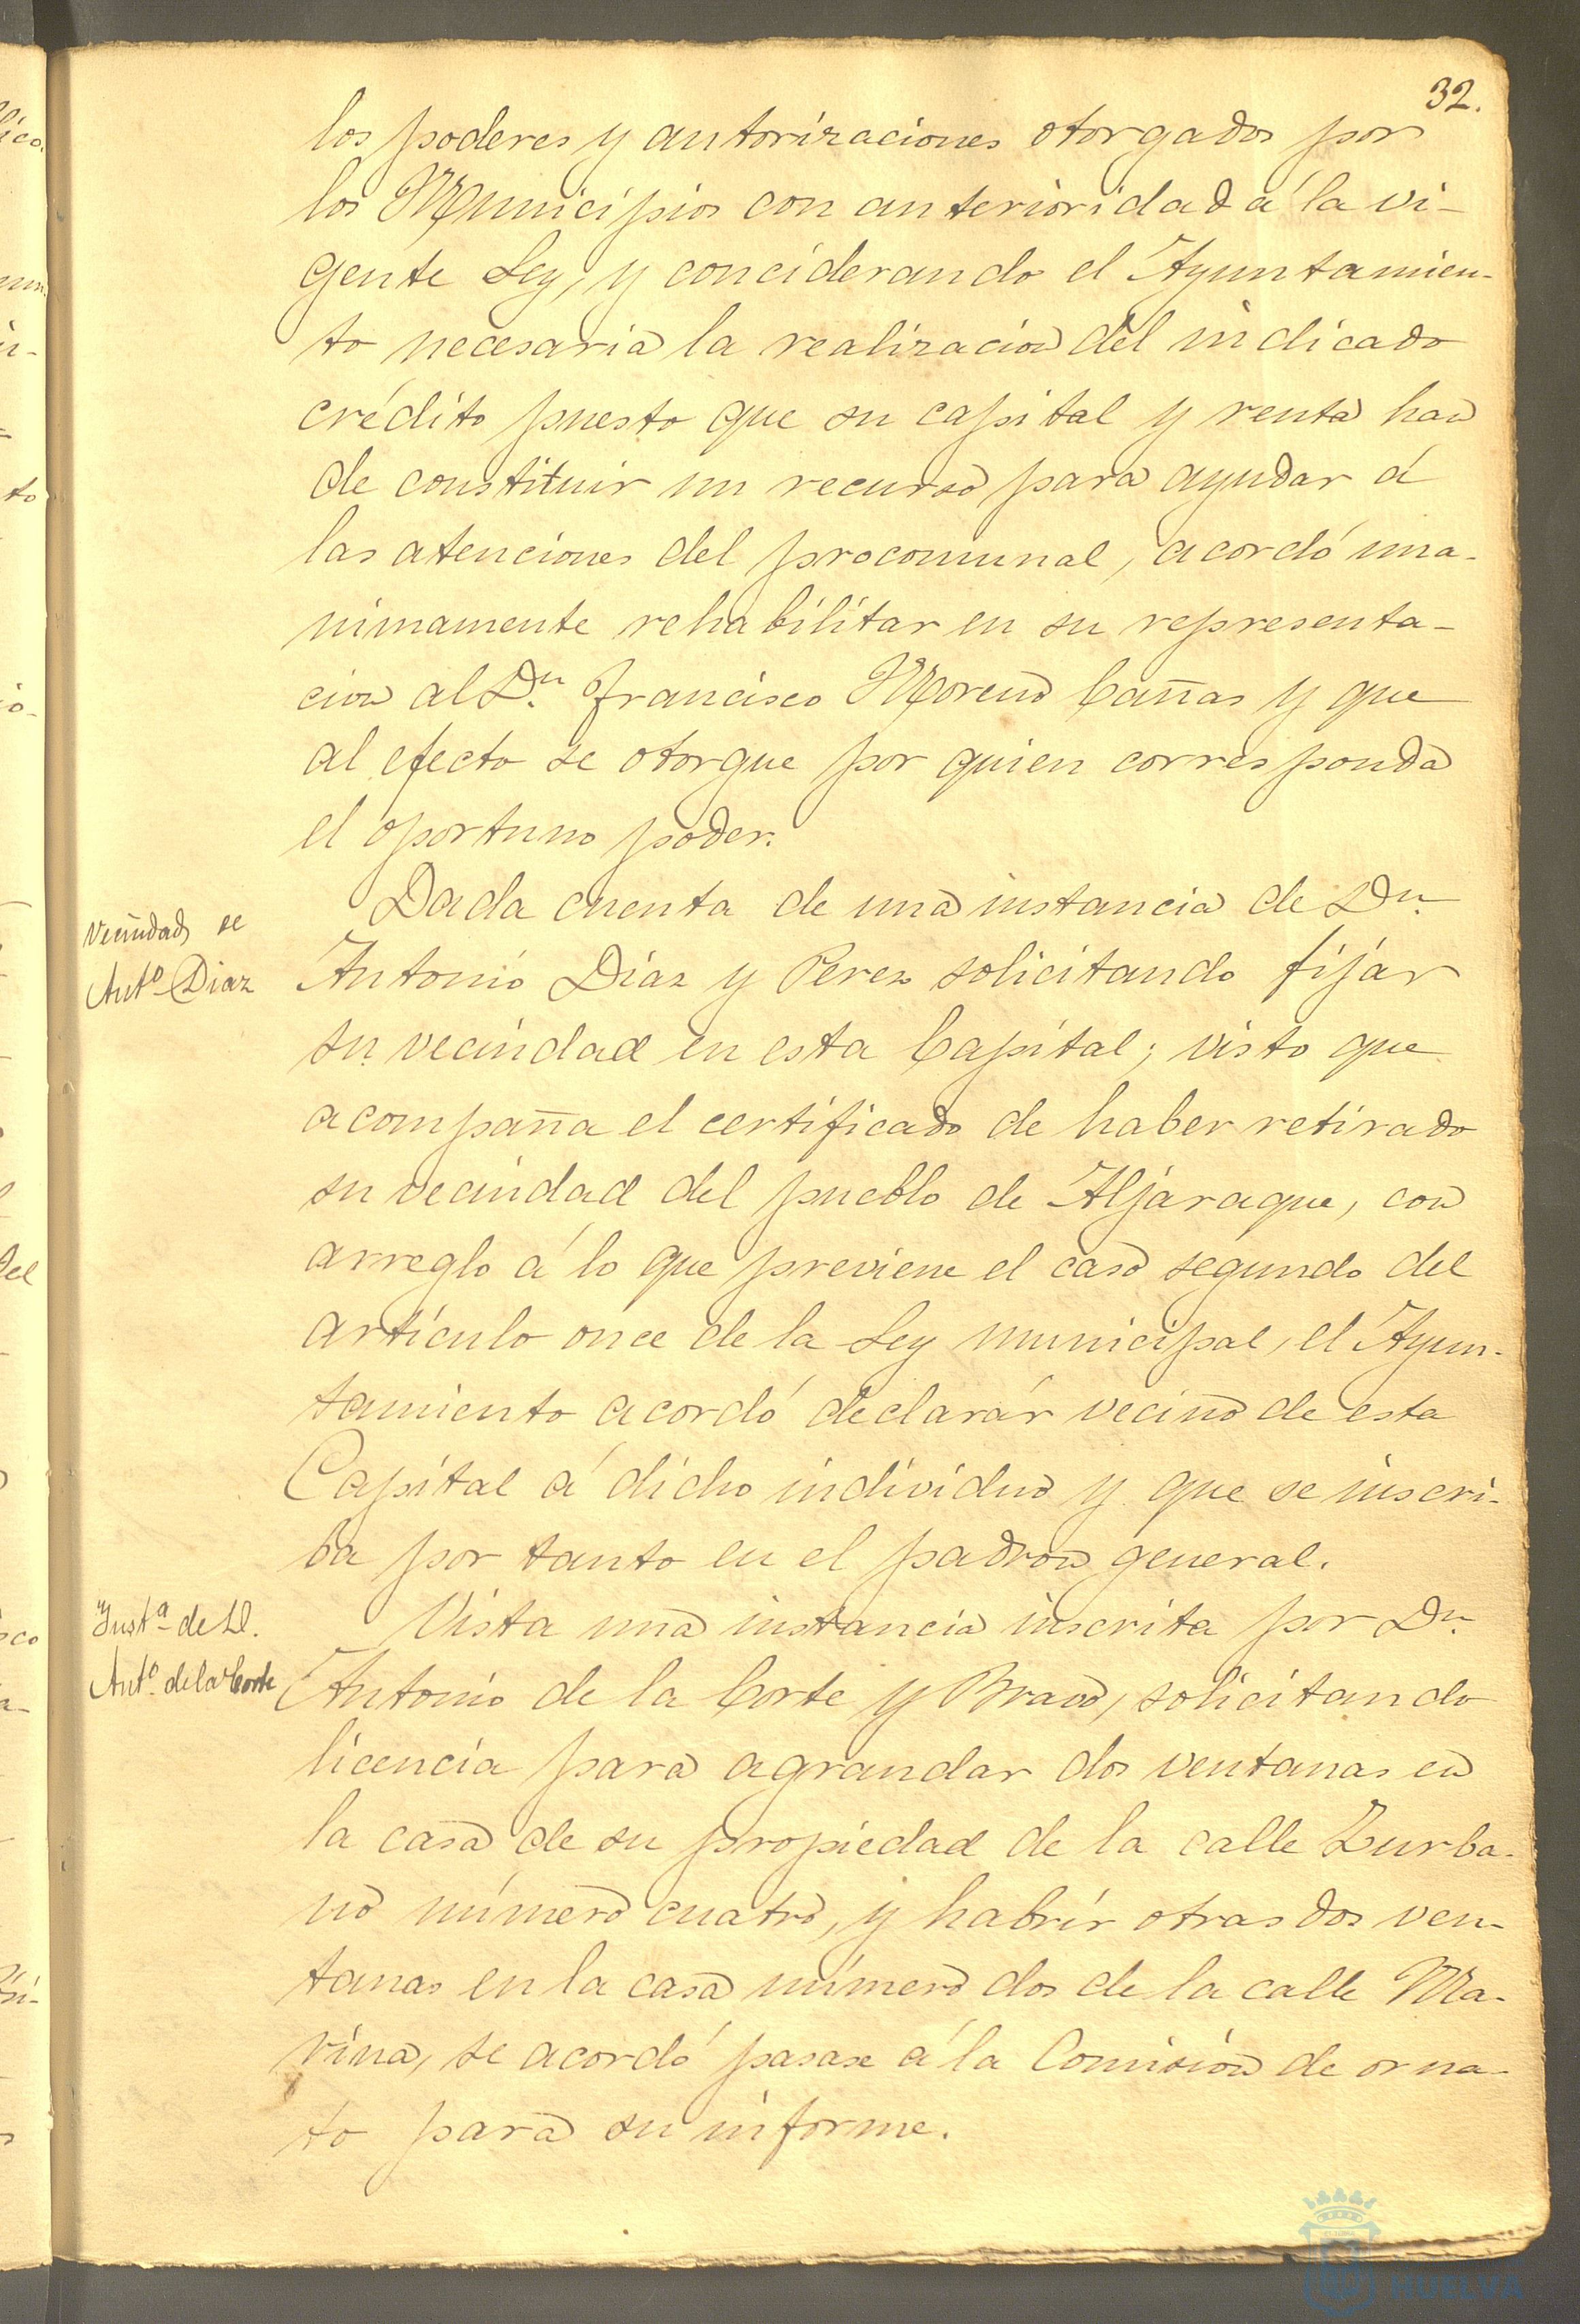 32.
los poderes y autorizaciones otorgados por
los Municipios con anterioridad á la vi-
gente Ley, y conciderando el Ayuntamien-
to necesaria la realizacion del indicado
crédito puesto que su capital y renta han
de constituir un recurso para ayudar á
las atenciones del procomunal, acordó una-
nimamente rehabilitar en su representa-
cion al Dn. Francisco Moreno Cañas y que
al efecto se otorgue por quien corresponda
el oportuno poder.
Dada cuenta de una instancia de Dn.
Vecindad se
Antº Diaz
Antonio Díaz y Perez solicitando fijar
su vecindad en esta Capital; visto que
acompaña el certificado de haber retirado
su vecindad del pueblo de Aljaraque, con
arreglo á lo que previene el caso segundo del
artículo once de la Ley municipal, el Ayun-
tamiento acordó declarár vecino de esta
Capital á dicho individuo y que se inscri-
ba por tanto en el padron general.
Instª de D.
Antº de la Corte
Vista una instancia inscrita por Dn.
Antonio de la Corte y Bravo, solicitando
licencia para agrandar dos ventanas en
la casa de su propiedad de la calle Zurba-
no número cuatro, y habrír otras dos ven-
tanas en la casa número dos de la calle Ma-
rina, se acordó pasase á la Comisión de orna-
to para su informe.
HUELVA